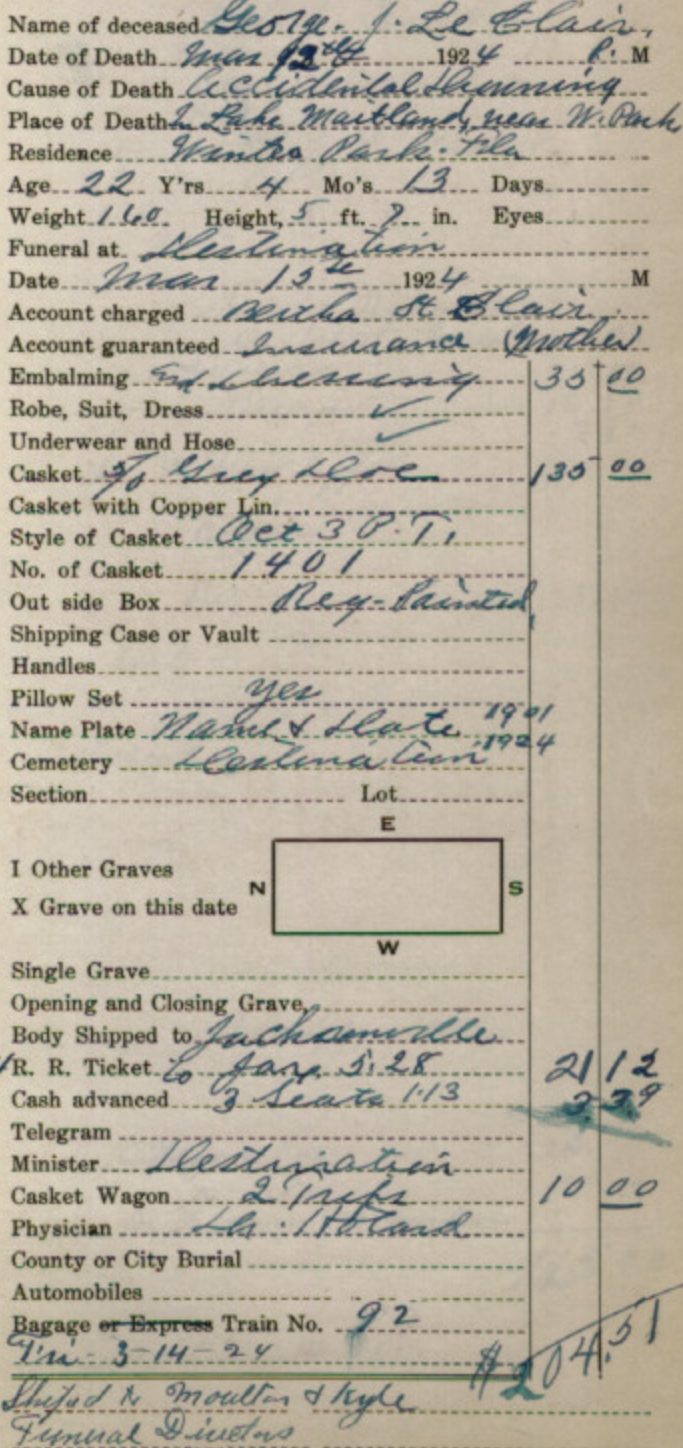 Name of deceased George. J. Le Clair,
Date of Death Mar 13th 1924 P. M
Cause of Death Accidental Drowning
Place of Death Lake Maitland, near W. Park
Residence Winter Park. Fla
Age 22 Y'rs 4 Mo's 13 Days
Weight 160 Height, 5 ft. 7 in. Eyes
Funeral at Destination
Date Mar 15th 1924 M
Account charged Bertha St Clair
Account guaranteed Insurance (Mother)
Embalming and Dressing 35 00
Robe, Suit, Dress ✓
Underwear and Hose ✓
Casket Grey Doe 135 00
Casket with Copper Lin.
Style of Casket Oct 3 P. T.
No. of Casket 1401
Out side Box Reg-Painted
Shipping Case or Vault
Handles
Pillow Set yes
Name Plate Name & Date 1901
Cemetery Destination 1924
Section Lot
E
I Other Graves
N S
X Grave on this date
W
Single Grave
Opening and Closing Grave,
Body Shipped to Jacksonville
R. R. Ticket to Jax. 5.28 21 12
Cash advanced 3 Seats 1.13 3 39
Telegram
Minister Destination
Casket Wagon 2 Trips 10 00
Physician Dr.
County or City Burial
Automobiles
Bagage or Express Train No. 92
Fri - 3-14-24 $204.51
Shiped to Moulton & Kyle
Funeral Directors